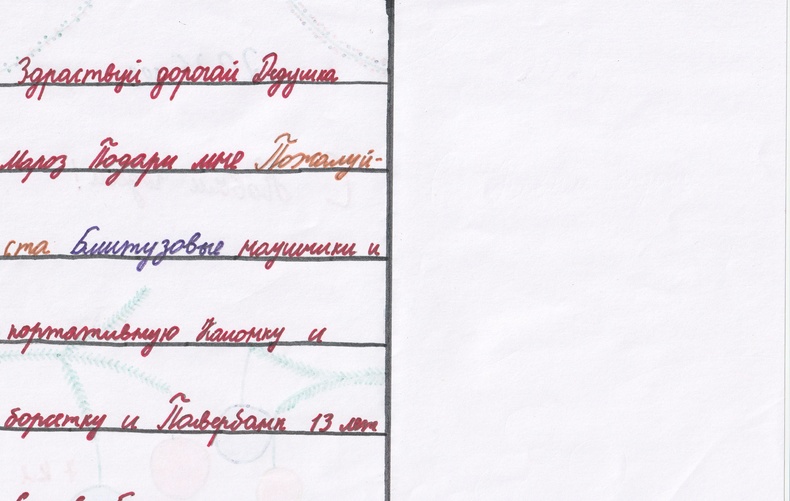 Здраствуй дорогай Дедушка
Мороз Подари мне Пожалуй-
ста Блитузовые наушники и
портативную Калонку и
и Павербанк 13 лет